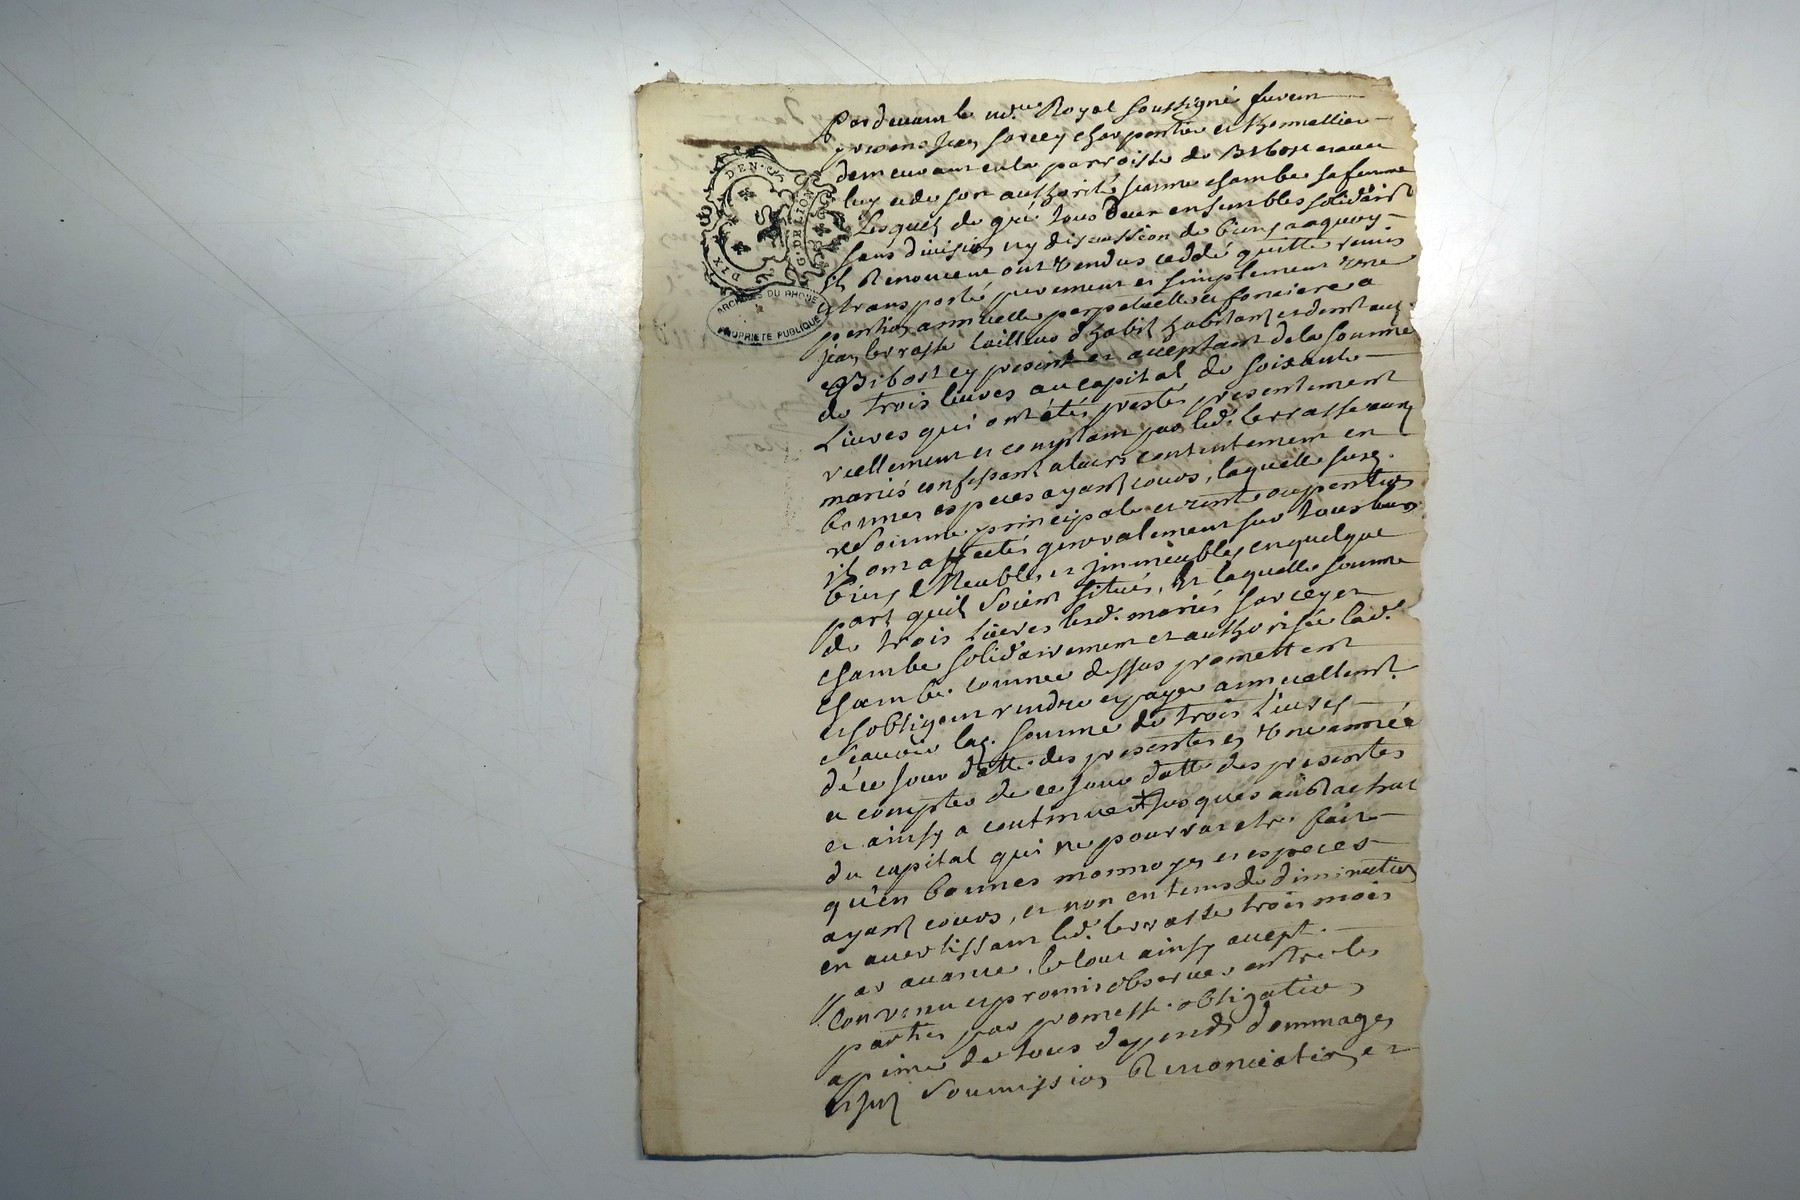 DIX DEN.ERS
G. DE LION
ARCHIVES DU RHÔNE
PROPRIÉTÉ PUBLIQUE
Pardevant le no.re Royal soussigné furem
presens Jean sarcey charpentier et
demeurant en la parroisse de Bibost avec
luy et de son authorité chambe sa femme
Lesquels de gré tous deux ensembles solidairt
sans division ny discussion de biens a quoy
ils Renoncent ont Vendus ceddé quitté remis
et transporté purement et simplement Une
pention annuelle perpetuelle et fonciere a
jean terrasse tailleur d'habit habitant
Bibost cy present et aceptant de la somme
de trois Livres au capital de soixante
Livres qui ont étés prestés presentement
reellement et comptant par led. terrasse auxq
mariés confessant a leurs contentement en
bonnes especes ayant cours, laquelle susd.
somme principale et rente ou pention
ils ont affectés generalement sur tous leurs
biens Meubles et jmmeubles en quelque
part quil soient situés, Et laquelle somme
de trois Livres lesd. mariés sarcey et
chambe solidairement et authorisée lad.
chambe comme dessus promettent
et sobligent rendre et payer annuellemt.
scavoir lad. somme de trois Livres
de ce jour datte des presentes en Une année
a compter de ce jour datte des presentes
et ainsy a continuer jusques au Rachat
du capital qui ne pourra etre fait
qu'en bonnes monnoyes et especes
ayant cours, et non en tems de diminution
en avertissant led. terrasse trois mois
par avance, le tout ainsy acept.
Convenu et promis observer entre les
parties par promesse obligation
a peine de tous depends dommages
et jnt soumission Renonciation et